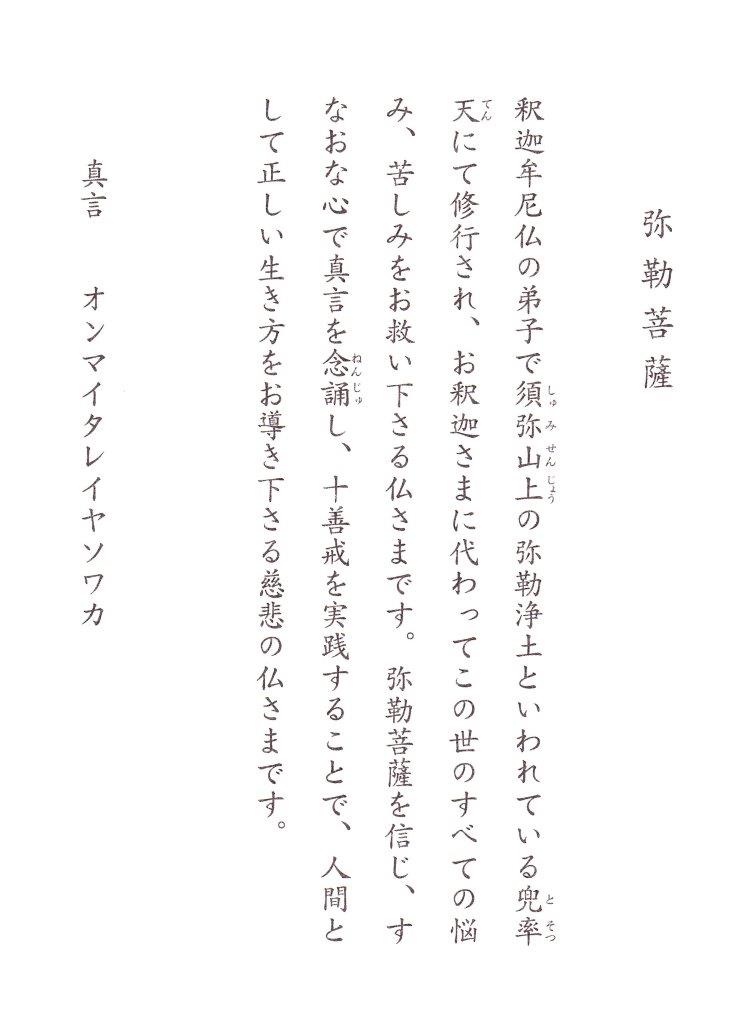 弥勒菩薩
釈迦牟尼仏の弟子で須弥山上の弥勒浄土といわれている兜率
天にて修行され、お釈迦さまに代わってこの世のすべての悩
み、苦しみをお救い下さる仏さまです。弥勒菩薩を信じ、す
なおな心で真言を念誦し、十善戒を実践することで、人間と
して正しい生き方をお導き下さる慈悲の仏さまです。
真言　オンマイタレイヤソワカ